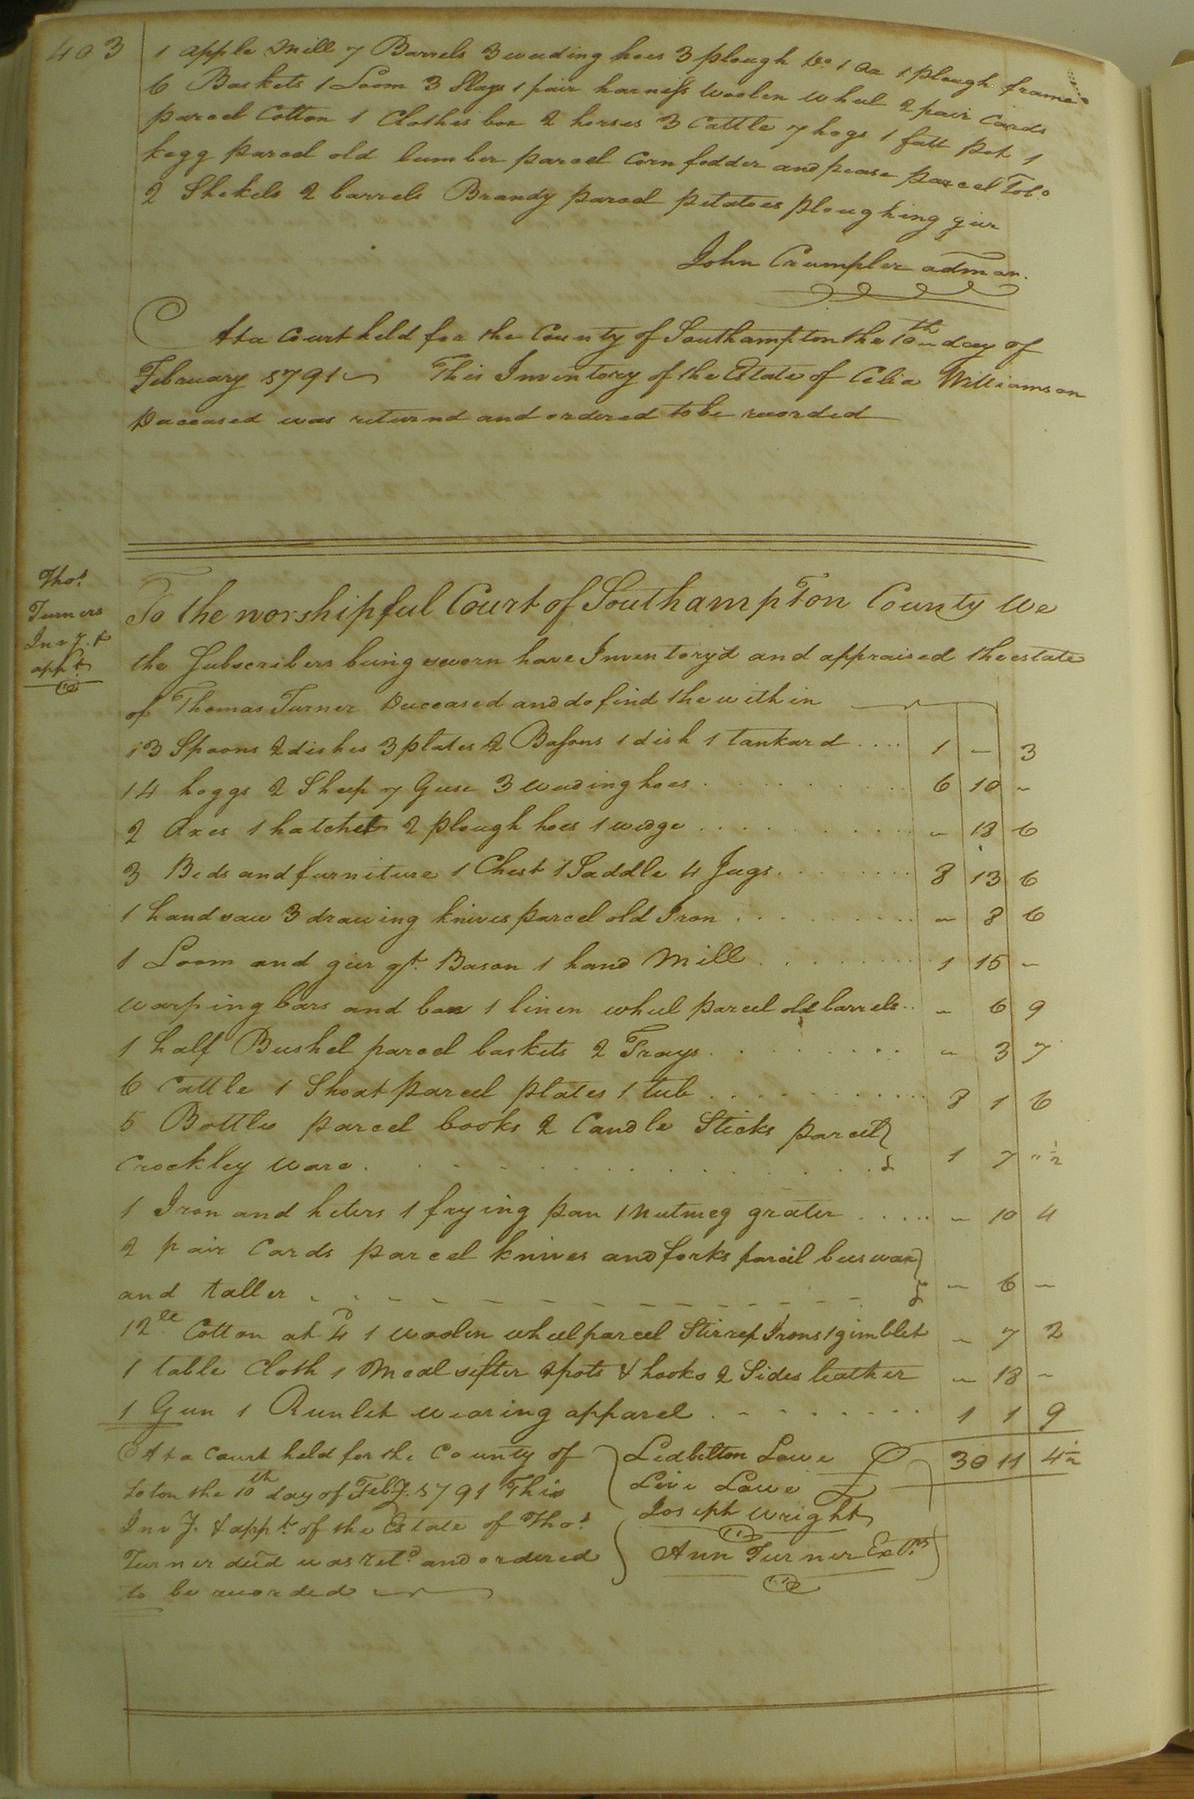 403
1 apple Mill 7 Barrels 3 weeding hoes 3 plough Do. 1 ax 1 plough frame
6 Baskets 1 Loom 3 Slays 1 pair harness Woolen wheel 2 pair Cards
parcel Cotton 1 Clothes box 2 horses 3 Cattle 7 hogs 1 fatt pot 1
kegg parcel old lumber parcel Corn fodder and pease parcel Tobo
2 Shekels 2 barrels Brandy parcel petatoes ploughing geer
John Crumpler adman.
At a Court held for the County of Southampton the 10th day of
February 1791 This Inventory of the Estate of Celia Williamson
Deceased was returnd and ordered to be recorded
Thos.
Turners
Invy. &
appt.
To the worshipful Court of Southampton County We
the Subscribers being sworn have Inventoryd and appraised the estate
of Thomas Turner Deceased and do find the within
13 Spoons 2 dishes 3 plates 2 Basons 1 dish 1 tankard .... 1 – 3
14 hoggs 2 Sheep 7 Geese 3 weeding hoes . . . . . 6 10 –
2 Axes 1 hatchet 2 plough hoes 1 wedge . . . . . – 13 6
3 Beds and furniture 1 Chest 1 Saddle 4 Jugs . . . . . 8 13 6
1 hand saw 3 drawing knives parcel old Iron . . . . . – 8 6
1 Loom and geer qt. Bason 1 hand Mill . . . . . 1 15 –
warping bars and box 1 linen wheel parcel old barrels .. – 6 9
1 half Bushel parcel baskets 2 Trays . . . . . – 3 7
6 Cattle 1 Shoat parcel plates 1 tub . . . . . 8 1 6
5 Bottles parcel books 2 Candle Sticks parcel
Crockley ware . . . . . 1 7 " ½
1 Iron and heters 1 frying pan 1 Nutmeg grater ..... – 10 4
2 pair Cards parcel knives and forks parcel beeswax
and taller – – – – – – 6 –
12 le Cotton at 4d 1 woolin wheel parcel Stirrep Irons 1 gimblet – 7 2
1 table Cloth 1 Meal sifter 2 pots & hooks 2 Sides leather – 18 –
1 Gun 1 Runlet wearing apparel . . . . . 1 1 9
30 11 4½
At a Court held for the County of
Soton the 10th day of Feby. 1791 This
Invy. & appt. of the Estate of Thos.
Turner decd was retd and ordered
to be recorded
Ledbetton Lowe
Levi Lawe
Joseph Wright
Ann Turner Extrs